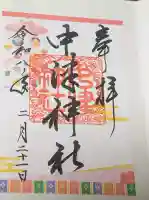 奉拝
中津神社
令和八年
二月二十一日